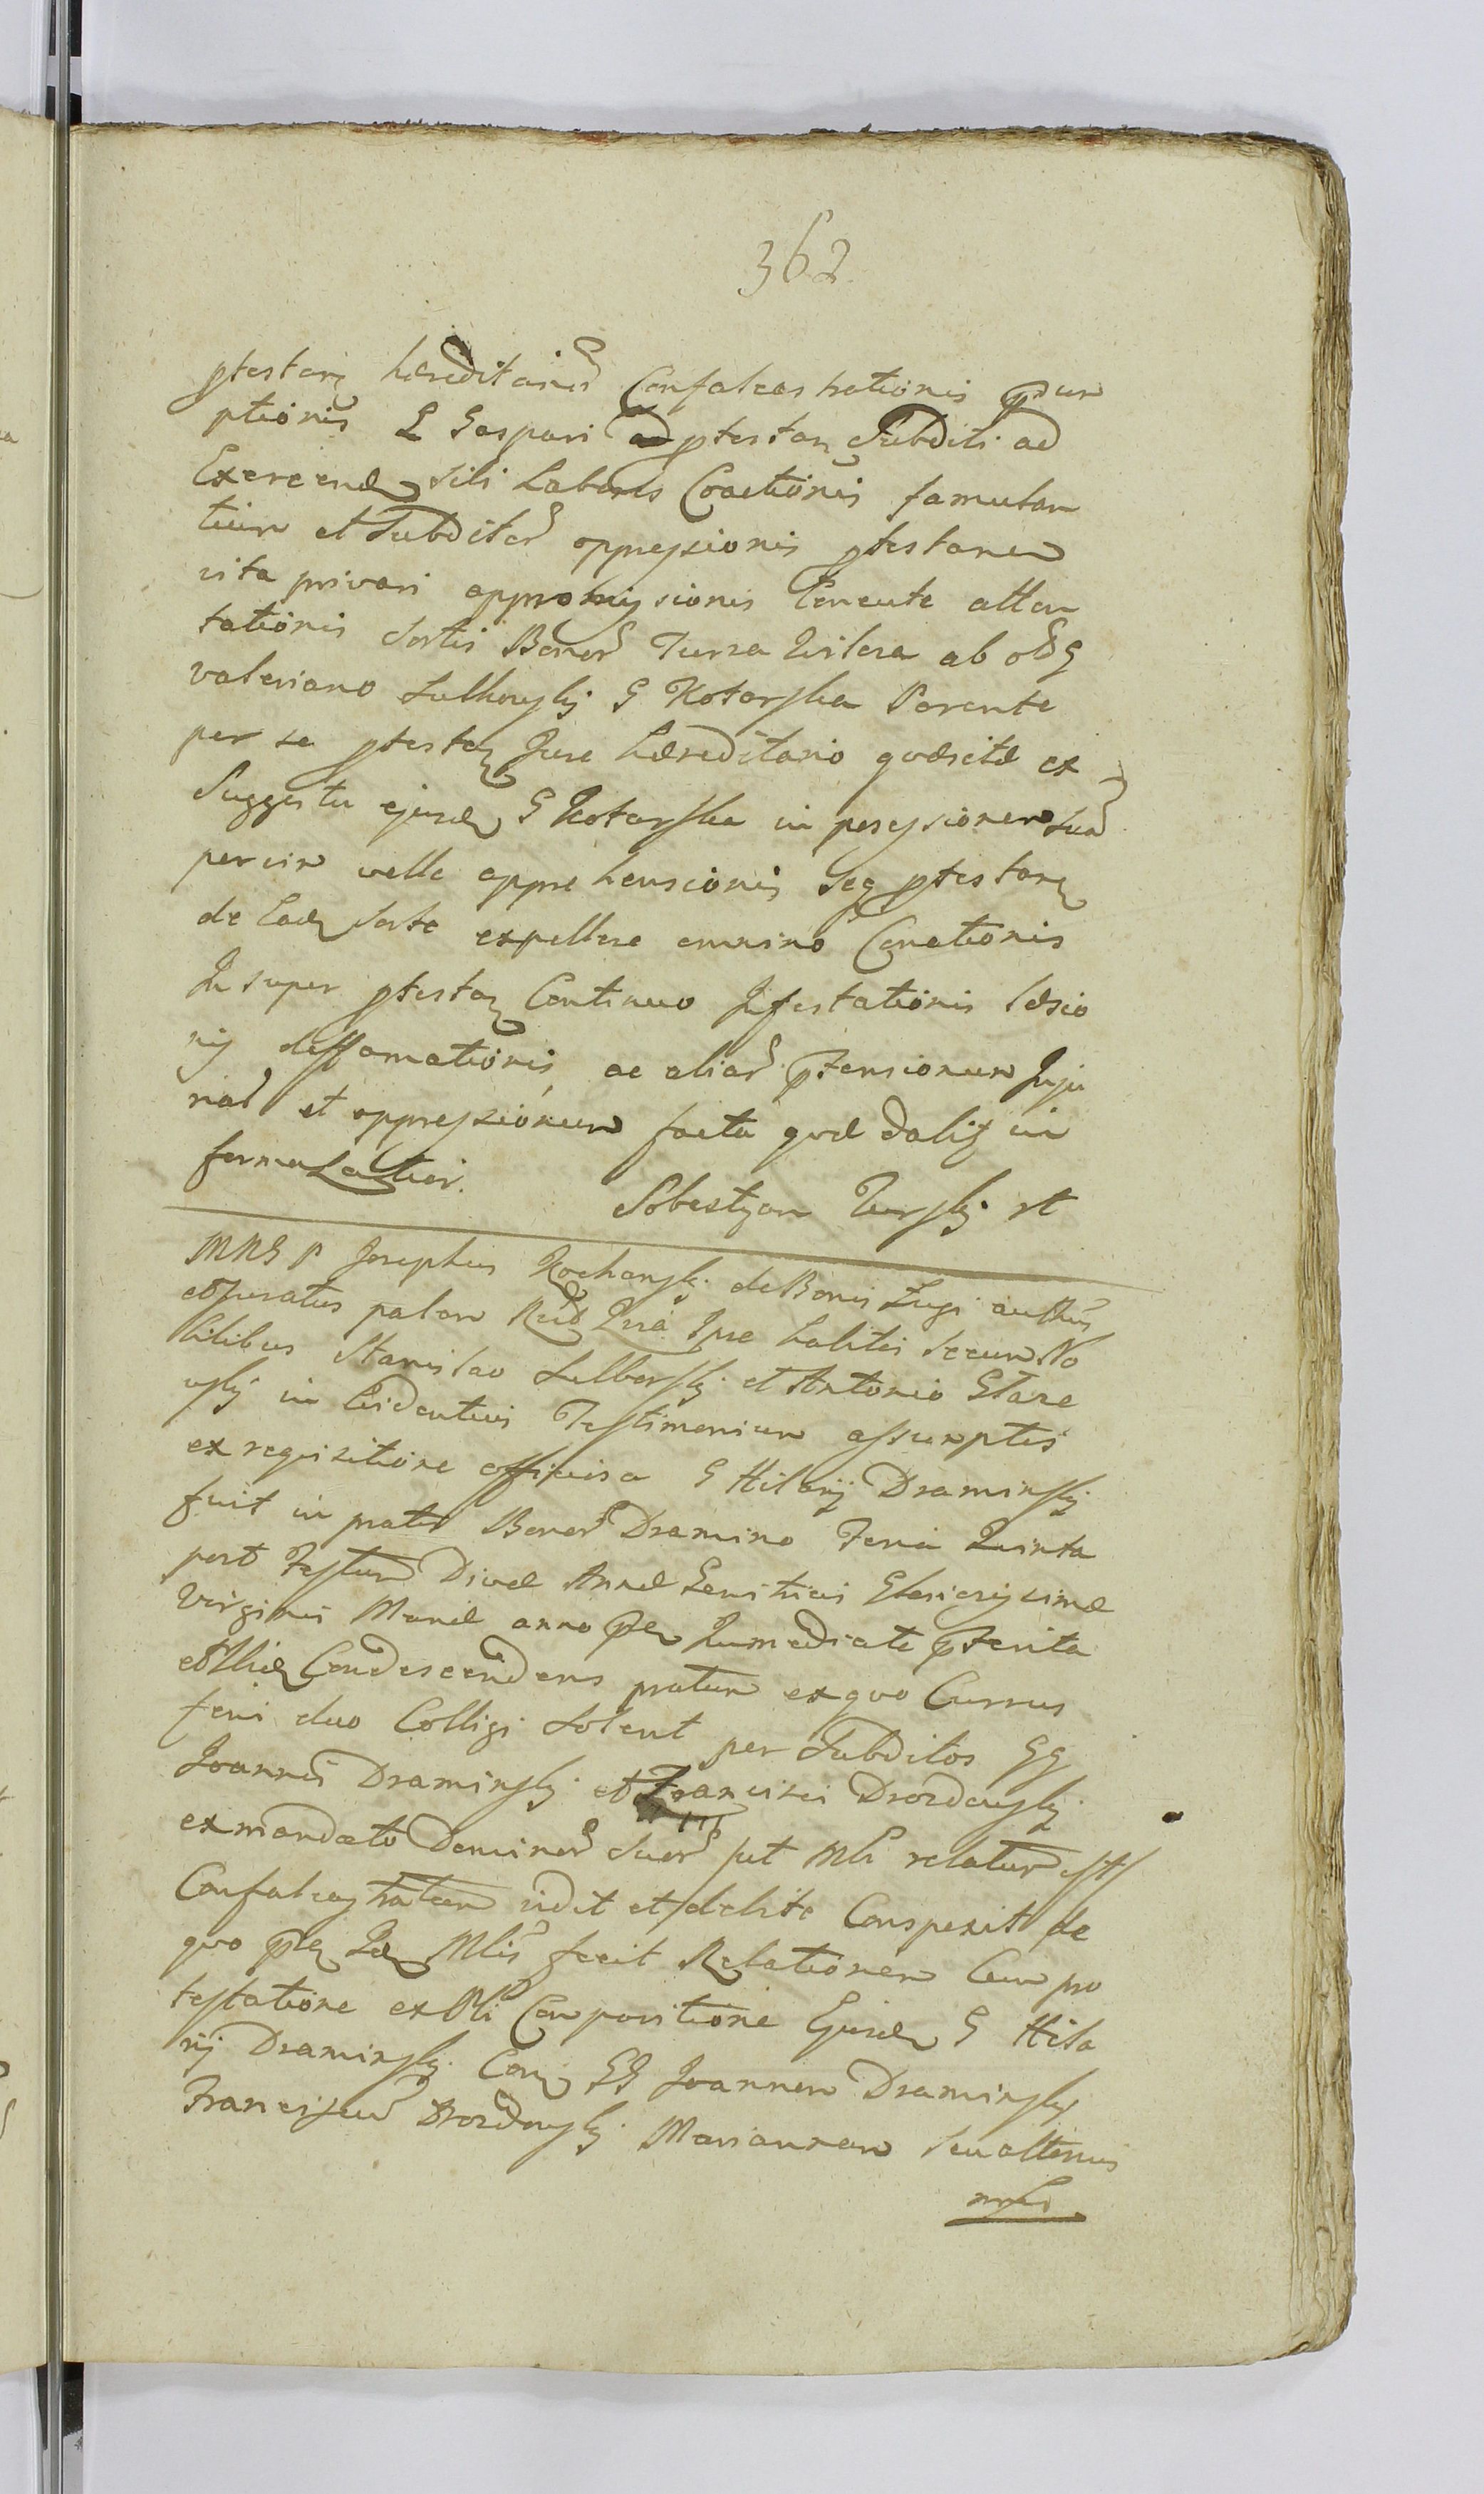 362
ptestans hæreditarior Confalcastrationis prum
ptionis L Gaspari ptestan Subditi ad
Exercend sibi Labores Coactionis famulan
tium et Subditor oppressionis ptestanem
vita privari appromissionis Cercute atten
tationis Sortis Bonor Tursa ab olG
valeriano Sulkowskj G Kotarska Parente
per se ptestan Jure hæreditario qvæsitæ ex
Suggestu ejusd G Kotarska in possessionem sua
per vim velle apprehensionis Seq ptestans
de Ead Sorte expellere omnino Conationis
Insuper ptestan Continuo Infestationis læsio
nis deffamationis, ac aliar ptensionum Inju
riar et oppressionum facta qvæ dalisz in
forma Latiori.
Sobestyan Turskj rt
MRG P Josephus Kochanskj de Bonis Lugi authus
et juratus palam Recog Quia Ipse habitis secum No
bilibus Stanislao Sulborskj et Antonio Glaze
wskj in Evidentius Testimonium assumptis
ex reqvisitione officiosa G Hilarij Draminskj
fuit in prato Bonor Dramino Feria Quinta
post Festum Divæ Annæ Genitricis Gloriosissimæ
Virginis Mariæ anno pn Immediate pterita
et Ibiq Condescendens pratum ex qvo Currus
feni duo Colligi Solent per Subditos GG
Joannis Draminskj et Francisci Drozdowskj
ex mandato Dominor Suor put Mli relatum est
Confalcastratum vidit et debite Conspexit de
qvo pn Id Mlis fecit Relationem Cum pro
testatione ex Pti Compositione Ejusd G Hila
rij Draminskj Con GG Joannem Draminskj
Franciscum Drozdowskj Mariannam Seu alterius